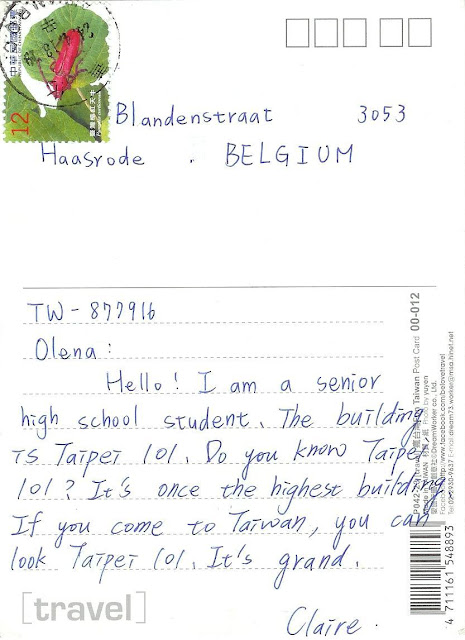 中華民國郵票
12
Blandenstraat 3053
Haasrode . BELGIUM
TW-877916
Olena:
Hello! I am a senior
high school student. The building
is Taipei 101. Do you know Taipei
101? It's once the highest building.
If you come to Taiwan, you can
look Taipei 101. It's grand.
[travel]
Claire.
Taiwan Post Card 00-012
Made in TAIWAN Photo by yuyen
DreamWorker co., Ltd.
http://www.facebook.com/belovetravel
4 711161 548893